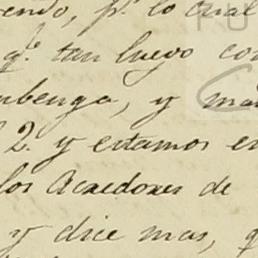 endo, p.r lo cual
q.e tan luego con
ubenga, y man
2.º y estamos en
los Acredores de
y dice mas, q